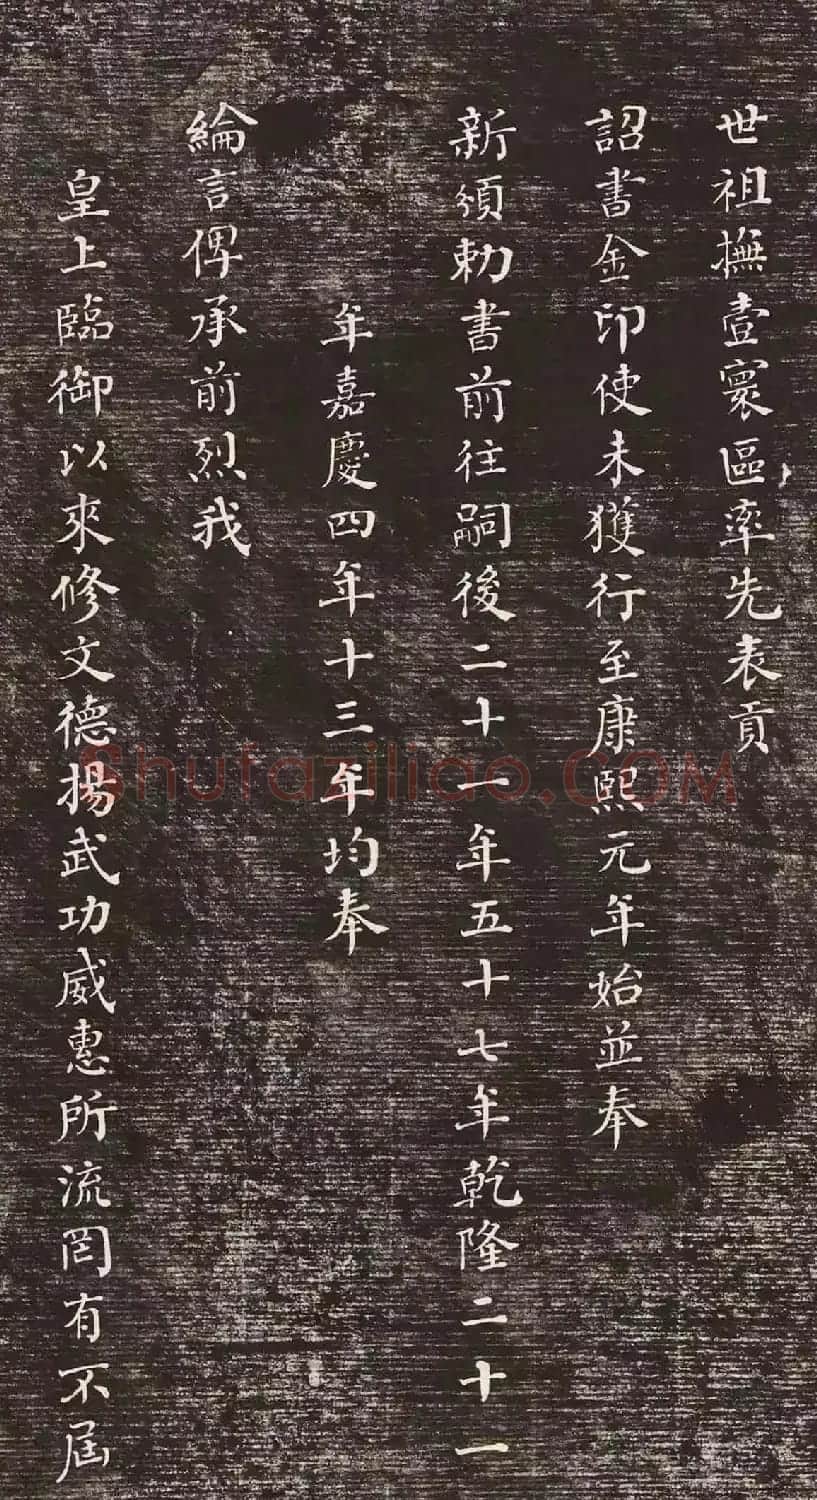 世祖撫壹寰區率先表貢
詔書金印使未獲行至康熙元年始並奉
新頒勅書前往嗣後二十一年五十七年乾隆二十一
年嘉慶四年十三年均奉
綸言俾承前烈我
皇上臨御以來修文德揚武功威惠所流罔有不屆
Shufaziliao.COM